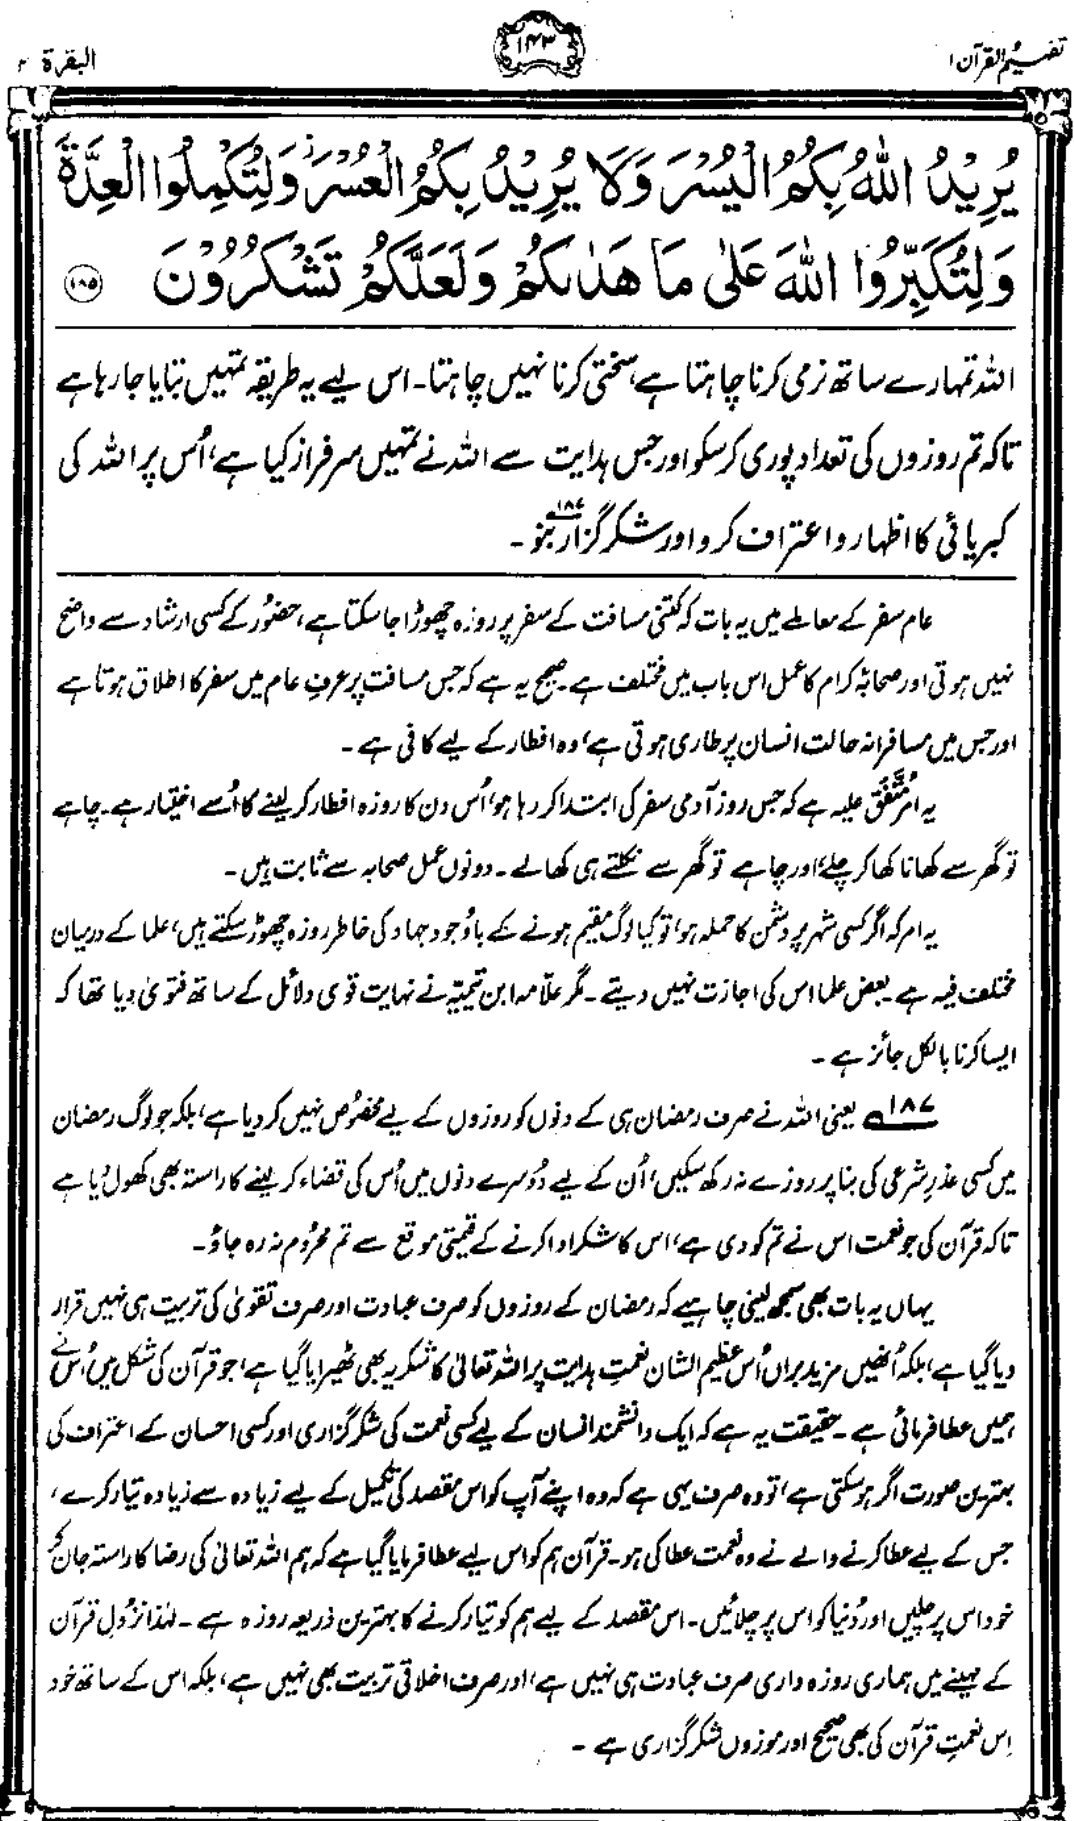 تفہیم القرآن ۱
۱۴۳
البقرۃ ۲
يُرِيْدُ اللّٰهُ بِكُمُ الْيُسْرَ وَلَا يُرِيْدُ بِكُمُ الْعُسْرَ ز وَلِتُكْمِلُوا الْعِدَّةَ
وَلِتُكَبِّرُوا اللّٰهَ عَلٰى مَا هَدٰىكُمْ وَلَعَلَّكُمْ تَشْكُرُوْنَ ۱۸۵
اللہ تمہارے ساتھ نرمی کرنا چاہتا ہے، سختی کرنا نہیں چاہتا۔ اس لیے یہ طریقہ تمہیں بتایا جا رہا ہے
تاکہ تم روزوں کی تعداد پوری کر سکو اور جس ہدایت سے اللہ نے تمہیں سرفراز کیا ہے، اُس پر اللہ کی
کبریائی کا اظہار و اعتراف کرو اور شکر گزار بنو ۱۸۷۔
عام سفر کے معاملے میں یہ بات کہ کتنی مسافت کے سفر پر روزہ چھوڑا جا سکتا ہے، حضورؐ کے کسی ارشاد سے واضح
نہیں ہوتی اور صحابۂ کرام کا عمل اس باب میں مختلف ہے۔ صحیح یہ ہے کہ جس مسافت پر عرفِ عام میں سفر کا اطلاق ہوتا ہے
اور جس میں مسافرانہ حالت انسان پر طاری ہوتی ہے، وہ افطار کے لیے کافی ہے۔
یہ امر مُتَّفَق علیہ ہے کہ جس روز آدمی سفر کی ابتدا کر رہا ہو، اُس دن کا روزہ افطار کر لینے کا اُسے اختیار ہے۔ چاہے
تو گھر سے کھانا کھا کر چلے، اور چاہے تو گھر سے نکلتے ہی کھا لے۔ دونوں عمل صحابہ سے ثابت ہیں۔
یہ امر کہ اگر کسی شہر پر دشمن کا حملہ ہو، تو کیا لوگ مقیم ہونے کے باوُجود جہاد کی خاطر روزہ چھوڑ سکتے ہیں، علما کے درمیان
مختلف فیہ ہے۔ بعض علما اس کی اجازت نہیں دیتے۔ مگر علّامہ ابن تیمیّہ نے نہایت قوی دلائل کے ساتھ فتویٰ دیا تھا کہ
ایسا کرنا بالکل جائز ہے۔
۱۸۷ یعنی اللہ نے صرف رمضان ہی کے دنوں کو روزوں کے لیے مخصُوص نہیں کر دیا ہے، بلکہ جو لوگ رمضان
میں کسی عذرِ شرعی کی بنا پر روزے نہ رکھ سکیں، اُن کے لیے دُوسرے دنوں میں اُس کی قضاء کر لینے کا راستہ بھی کھول دیا ہے
تاکہ قرآن کی جو نعمت اس نے تم کو دی ہے، اس کا شکر ادا کرنے کے قیمتی موقع سے تم محرُوم نہ رہ جاؤ۔
یہاں یہ بات بھی سمجھ لینی چاہیے کہ رمضان کے روزوں کو صرف عبادت اور صرف تقویٰ کی تربیت ہی نہیں قرار
دیا گیا ہے، بلکہ اُنھیں مزید براں اُس عظیم الشان نعمتِ ہدایت پر اللہ تعالیٰ کا شکریہ بھی ٹھیرایا گیا ہے، جو قرآن کی شکل میں اُس نے
ہمیں عطا فرمائی ہے۔ حقیقت یہ ہے کہ ایک دانشمند انسان کے لیے کسی نعمت کی شکر گزاری اور کسی احسان کے اعتراف کی
بہترین صورت اگر ہو سکتی ہے، تو وہ صرف یہی ہے کہ وہ اپنے آپ کو اس مقصد کی تکمیل کے لیے زیادہ سے زیادہ تیار کرے،
جس کے لیے عطا کرنے والے نے وہ نعمت عطا کی ہو۔ قرآن ہم کو اس لیے عطا فرمایا گیا ہے کہ ہم اللہ تعالیٰ کی رضا کا راستہ جان کر
خود اس پر چلیں اور دُنیا کو اس پر چلائیں۔ اس مقصد کے لیے ہم کو تیار کرنے کا بہترین ذریعہ روزہ ہے۔ لہٰذا نزُولِ قرآن
کے مہینے میں ہماری روزہ داری صرف عبادت ہی نہیں ہے، اور صرف اخلاقی تربیت بھی نہیں ہے، بلکہ اس کے ساتھ خود
اِس نعمتِ قرآن کی بھی صحیح اور موزوں شکر گزاری ہے۔